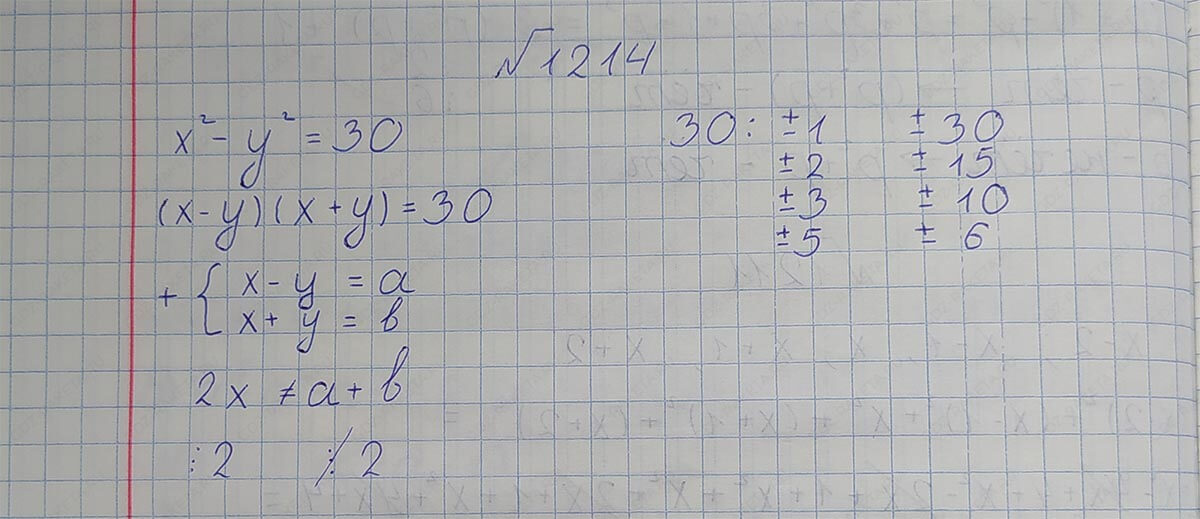 №1214
x² - y² = 30
(x-y)(x+y) = 30
+ { x - y = a
x + y = b
2x ≠ a + b
⋮2 ⋮̸ 2
30: ±1 ±30
±2 ±15
±3 ±10
±5 ±6